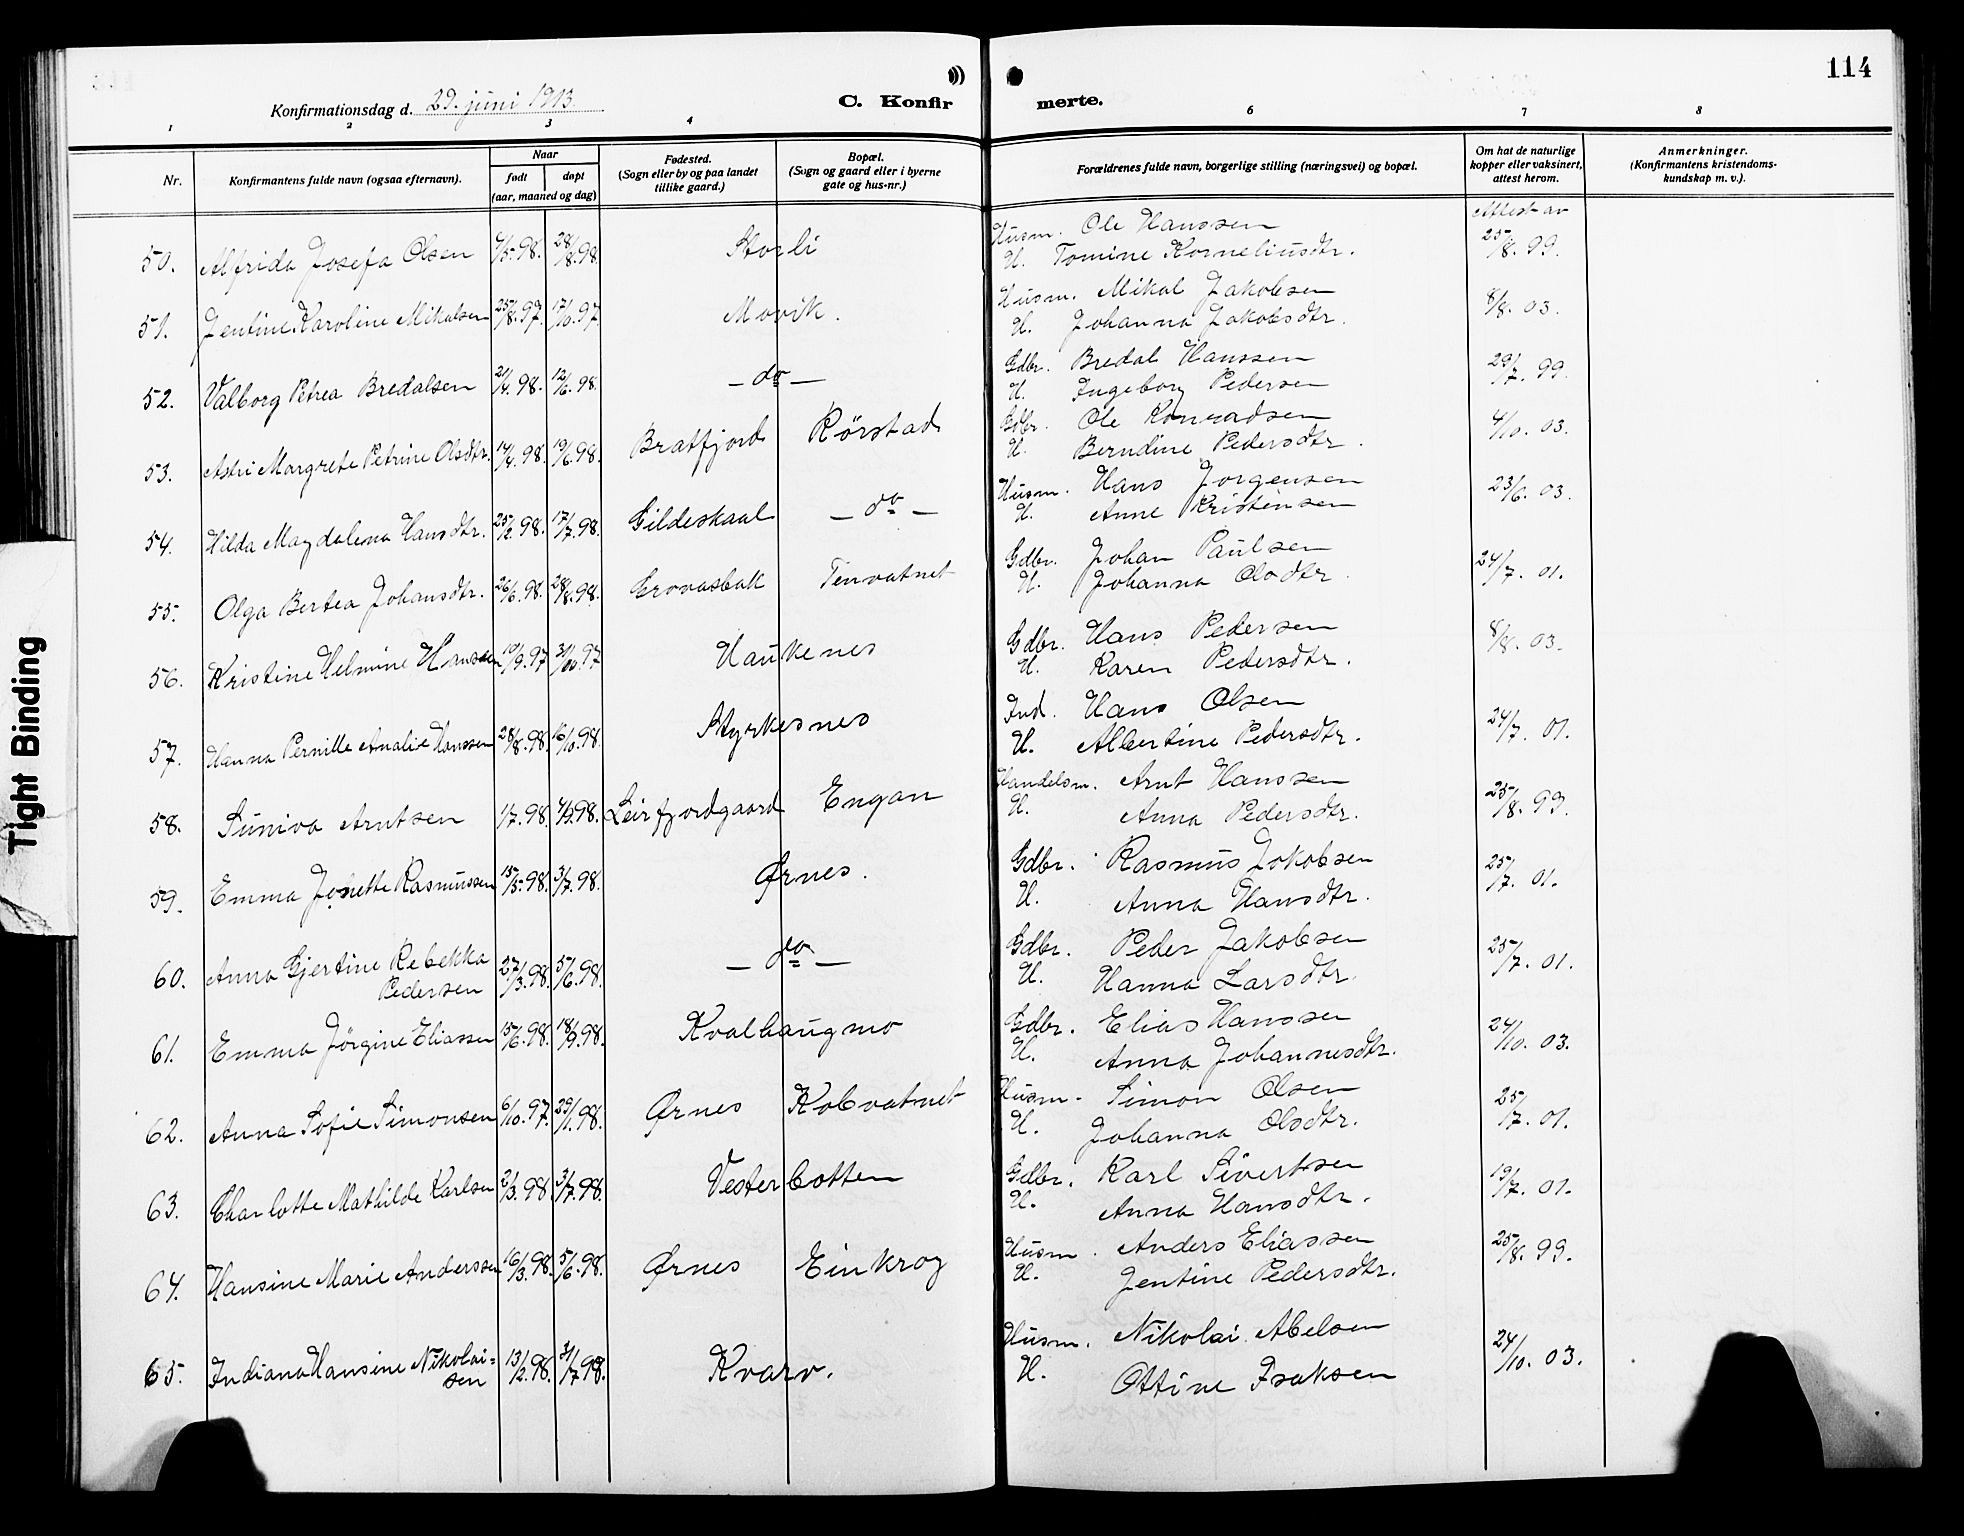 114
Konfirmationsdag d. 29. juni 1913.
C. Konfir merte.
1 2 3 4 6 7 8
Nr.
Konfirmantens fulde navn (ogsaa efternavn).
Naar
født døpt
(aar, maaned og dag)
Fødested.
(Sogn eller by og paa landet
tillike gaard.)
Bopæl.
(Sogn og gaard eller i byerne
gate og hus-nr.)
Forældrenes fulde navn, borgerlige stilling (næringsvei) og bopæl.
Om hat de naturlige
kopper eller vaksinert,
attest herom.
Anmerkninger.
(Konfirmantens kristendoms-
kundskap m. v.).
Attest av
50. Alfrida Josefa Olsen 4/5.98. 28/8.98 Storli Husm. Ole Hanssen 25/8. 99.
H. Tomine Korneliusdtr.
51. Jentine Karoline Mikalsen 25/8.97. 17/10.97 Movik. Husm. Mikal Jakobsen 8/8. 03.
H. Johanna Jakobsdtr.
52. Valborg Petrea Bredalsen 21/4.98. 12/6.98. - do - Gdbr. Bredal Hanssen 29/7. 99.
H. Ingeborg Pedersen
53. Astri Margrete Petrine Olsdtr. 14/4.98. 19/6.98. Bratfjord Rørstad Gdbr. Ole Konradsen 4/10. 03.
H. Berndine Pedersdtr.
54. Hilda Magdalena Hansdtr. 25/2.98. 17/7.98. Gildeskaal - do - Husm. Hans Jørgensen 23/6. 03.
H. Anne Kristensen
55. Olga Bertea Johansdtr. 26/6.98. 28/8.98. Grovasbak Tenvatnet Gdbr. Johan Paulsen 24/7. 01.
H. Johanna Olsdtr.
56. Kristine Helmine Hanssen 10/9.97 31/10.97 Haukenes Gdbr. Hans Pedersen 8/8. 03.
H. Karen Pedersdtr.
57. Hanna Pernille Amalie Hanssen 28/8.98. 16/10.98. Styrkesnes Ind. Hans Olsen 24/7. 01.
H. Albertine Pedersdtr.
58. Suniva Arntsen 1/7.98. 4/9.98. Leirfjordgaard Engan Handelsm. Arnt Hanssen 25/8. 99.
H. Anna Pedersdtr.
59. Emma Jonette Rasmussen 15/5.98. 3/7.98. Ørnes. Gdbr. Rasmus Jakobsen 25/7. 01.
H. Anna Hansdtr.
60. Anna Gjertine Rebekka 27/3.98. 5/6.98. - do - Gdbr. Peder Jakobsen 25/7. 01.
Pedersen H. Hanna Larsdtr.
61. Emma Jørgine Eliassen 15/6.98. 18/9.98. Kvalhaugmo Gdbr. Elias Hanssen 24/10. 03.
H. Anna Johannesdtr.
62. Anna Sofie Simonsen 6/10.97. 29/1.98. Ørnes Kobvatnet Husm. Simon Olsen 25/7. 01.
H. Johanna Olsdtr.
63. Charlotte Mathilde Karlsen 2/3.98. 3/7.98. Vesterbotten Gdbr. Karl Sivertsen 19/7. 01.
H. Anna Hansdtr.
64. Hansine Marie Anderssen 16/3.98. 5/6.98. Ørnes Einkrog Husm. Anders Eliassen 25/8. 99.
H. Jentine Pedersdtr.
65. Indiana Hansine Nikolai= 13/2.98. 31/7.98. Kvarv. Husm. Nikolai Abelsen 24/10. 03.
sen H. Ottine Isaksen
Tight Binding